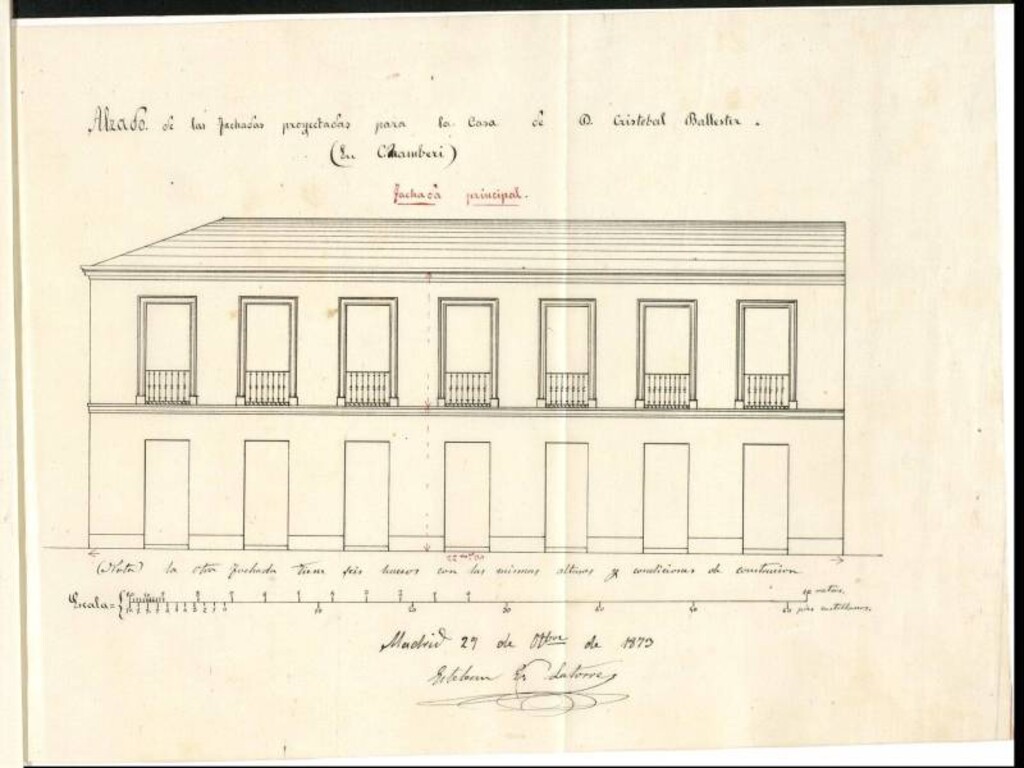 Alzado. de las fachadas proyectadas para la Casa de D. Cristobal Ballester.
(En Chamberi)
fachada principal.
(Nota) la otra fachada tiene seis huecos con las mismas alturas y condiciones de construcion
Escala =
metros.
10 20 30 40 50 60 pies castellanos.
Madrid 29 de de 1873
Esteban Latorre